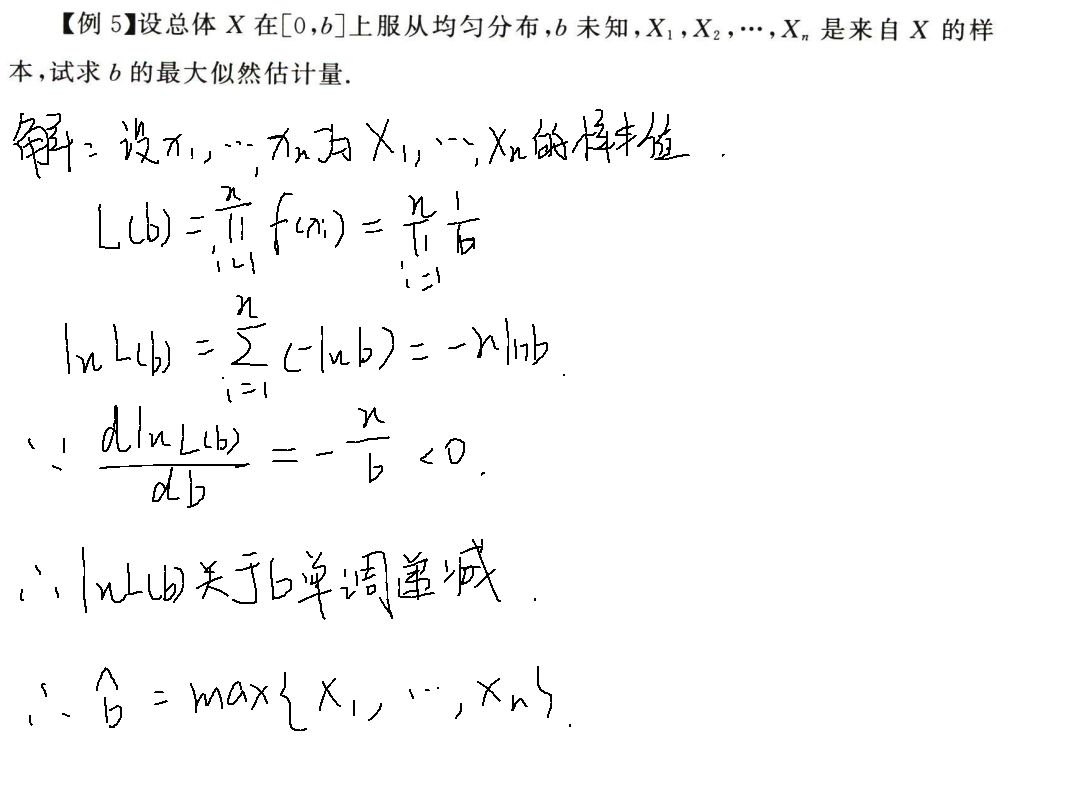 【例 5】设总体 X 在[0,b]上服从均匀分布,b 未知,X₁,X₂,…,Xₙ 是来自 X 的样
本,试求 b 的最大似然估计量.
解: 设x₁,…,xₙ为 X₁,…,Xₙ的样本值.
L(b) = ∏ⁿᵢ₌₁ f(xᵢ) = ∏ⁿᵢ₌₁ 1/b
ln L(b) = ∑ⁿᵢ₌₁ (-ln b) = -n ln b.
∵ d ln L(b)/db = - n/b < 0.
∴ ln L(b) 关于b单调递减.
∴ b̂ = max{X₁, …, Xₙ}.